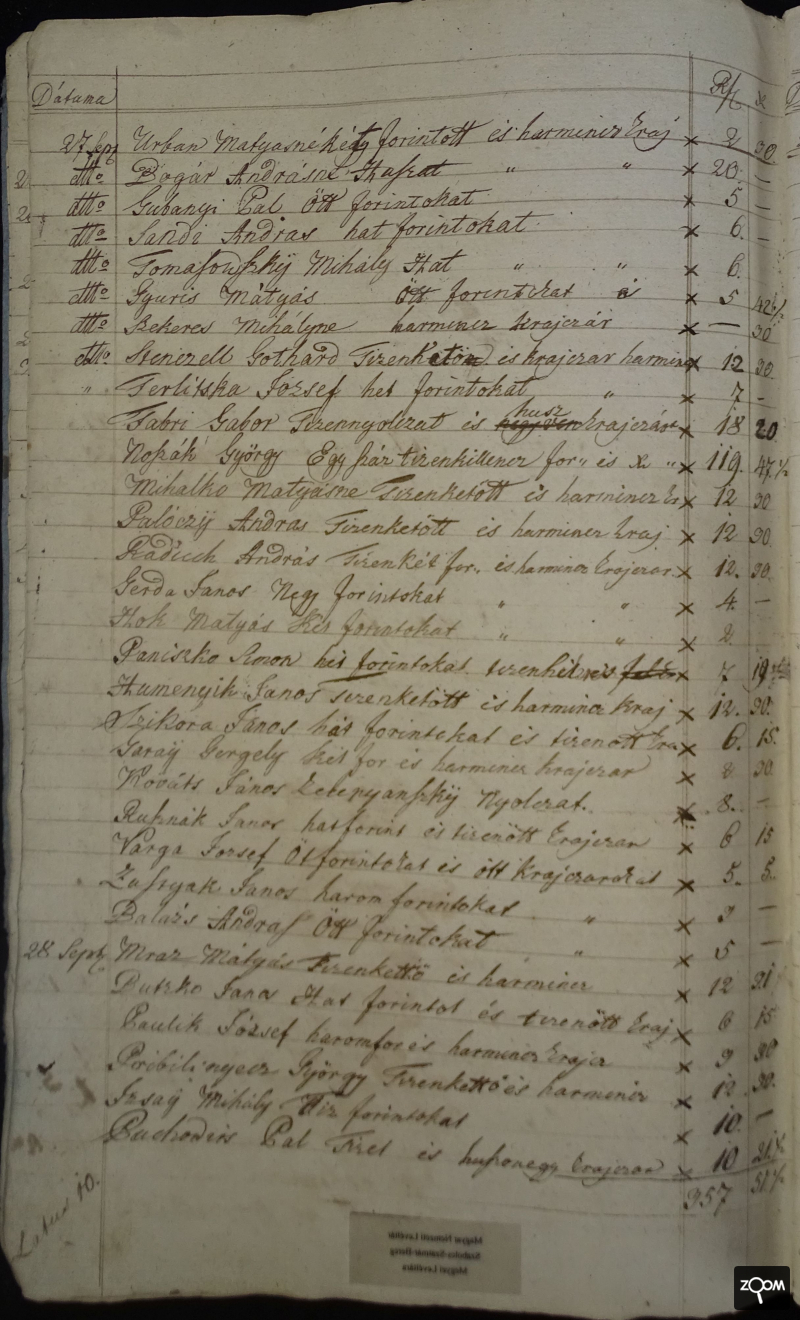 Dátuma Rf x
27 Sept Urban Matyasné két forintott és harmincz kraj x 2 30
dtto Bogár Andrásné Huszat " " x 20 –
dtto Gubanyi Pal Ött forintokat x 5 –
dtto Sandi Andras hat forintokat x 6. –
dtto Tomasouszkÿ Mihály Hat " " x 6.
dtto Gyuris Mátyás Ött forintokat és x 5 42½
dtto Bekeres Mihályne harmincz krajczár x — 30
dtto Stenczell Gothard Tizenkettöm és krajczar harmincz x 12 30
" Terlitska Jozsef het forintokat " x 7 –
Fabri Gabor Tizennyolczat és husz krajczár x 18 20
Noszák György Egy száz tizenkillencz for" és x " x 119. 47½
Mihalko Matyásne Tizenketött és harmincz kr x 12 30
Palóczÿ Andras Tizenketött és harmincz kraj x 12 30
Radich András Tizenkét for. és harmincz krajczar x 12. 30.
Gerda Janos Negy forintokat " " x 4. –
Hok Matyás két forintokat " " x 2.
Paniszko Simon hét forintokat x 7 19
Humenyik Janos tizenketött és harmincz kraj x 12. 30.
Szikora Janos hat forintokat és tizenött kra x 6. 15.
Garaÿ Gergely két for és harmincz krajczar x 30
Kováts János Nyolczat. x 8. –
Rusznák Janos hat forint és tizenött krajczar x 6 15
Varga Jozsef Öt forintokat és ött krajczarokat x 5. 5.
Janos harom forintokat " x 3 –
Balazs Andras Ött forintokat " x 5 –
28 Sept Mraz Mátyás Tizenkettö és harmincz x 12 31
Janos Hat forintot és tizenött kraj x 6 15
Paulik József harom for és harmincz krajcz x 3 30
Pribilinyecz György Tizenkettö és harmincz x 12 30.
Mihály Tiz forintokat x 10. –
Pal Tizet és huszonegy krajczar x 10 21½
357 51½
Latus 10.
Magyar Nemzeti Levéltár
Szabolcs-Szatmár-Bereg
Megyei Levéltára
ZOOM